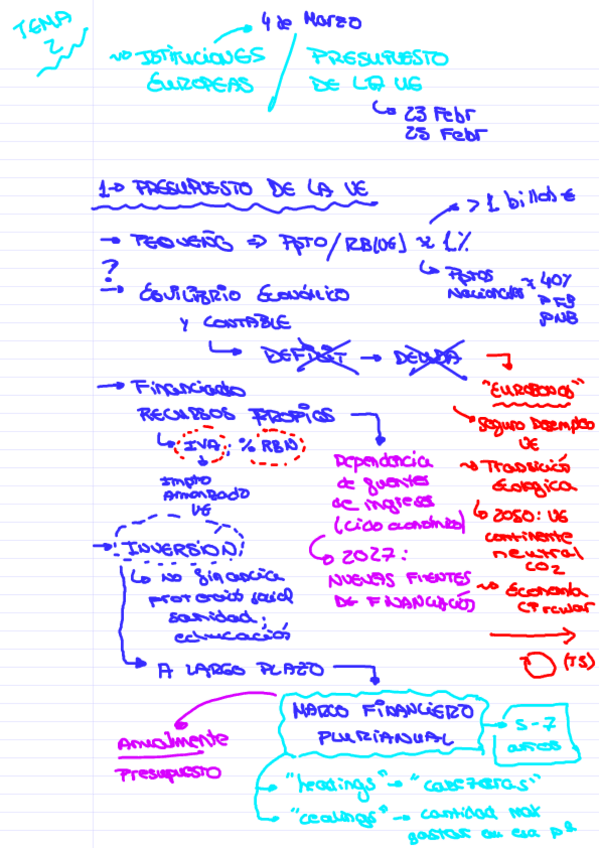 TEMA 2
4 de Marzo
~ ISTITUCIONES EUROPEAS / PRESUPUESTO DE LA UE
↳ 23 Febr
25 Febr
1→ PRESUPUESTO DE LA UE
→ PEQUEÑO ⇒ PPTO/RB(UE) ≈ 1%
→ > 1 billon €
↳ Pptos Nacionales ≈ 40%
PIB
PNB
?
→ EQUILIBRIO ECONÓMICO
Y CONTABLE
↳ DEFICIT → DEUDA
"EUROBONOS"
Seguro Desempleo
UE
~ Transició
Ecológica
↳ 2050: UE
continente
neutral
CO2
~ Economía
Circular
(TS)
→ Financiado
RECURSOS PROPIOS
↳ IVA; % RBN
↓
Impto
Armonizado
UE
Dependencia
de fuentes
de ingresos
(ciclo económico)
↳ 2027:
NUEVAS FUENTES
DE FINANCIACIÓ
→ INVERSION
↳ no financia
protecció social
sanidad;
educació
↳ A LARGO PLAZO
MARCO FINANCIERO
PLURIANUAL
→ 5-7
años
Anualmente
Presupuesto
→ "headings" → "cabezeras"
→ "cealings" → cantidad MAX
gastar en esa